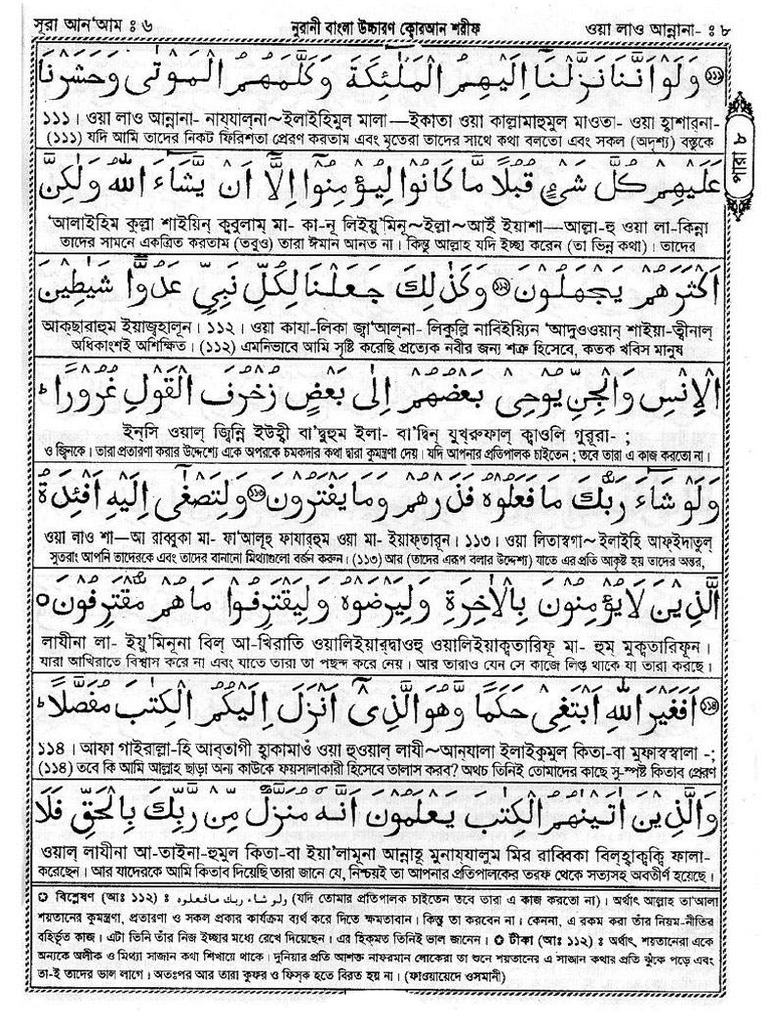 সূরা আন'আম ঃ ৬
নূরানী বাংলা উচ্চারণ কোরআন শরীফ
ওয়া লাও আন্নানা- ঃ ৮
পারা ৮
﴿١١١﴾ وَلَوْ اَنَّنَا نَزَّلْنَا اِلَيْهِمُ الْمَلٰٓئِكَةَ وَكَلَّمَهُمُ الْمَوْتٰى وَحَشَرْنَا
১১১। ওয়া লাও আন্নানা- নায্যাল্না~ইলাইহিমুল মালা—ইকাতা ওয়া কাল্লামাহুমুল মাওতা- ওয়া হ্বাশার্না-
(১১১) যদি আমি তাদের নিকট ফিরিশতা প্রেরণ করতাম এবং মৃতেরা তাদের সাথে কথা বলতো এবং সকল (অদৃশ্য) বস্তুকে
عَلَيْهِمْ كُلَّ شَىْءٍ قُبُلًا مَّا كَانُوْا لِيُؤْمِنُوْٓا اِلَّآ اَنْ يَّشَآءَ اللّٰهُ وَلٰكِنَّ
'আলাইহিম কুল্লা শাইয়িন্ কুবুলাম্ মা- কা-নূ লিইয়ু'মিনূ~ইল্লা~আইঁ ইয়াশা—আল্লা-হু ওয়া লা-কিন্না
তাদের সামনে একত্রিত করতাম (তবুও) তারা ঈমান আনত না। কিন্তু আল্লাহ যদি ইচ্ছা করেন (তা ভিন্ন কথা)। তাদের
اَكْثَرَهُمْ يَجْهَلُوْنَ ﴿١١٢﴾ وَكَذٰلِكَ جَعَلْنَا لِكُلِّ نَبِىٍّ عَدُوًّا شَيٰطِيْنَ
আক্ছারাহুম ইয়াজ্বহালূন। ১১২। ওয়া কাযা-লিকা জ্বা'আল্না- লিকুল্লি নাবিইয়্যিন 'আদুওওয়ান্ শাইয়া-ত্বীনাল্
অধিকাংশই অশিক্ষিত। (১১২) এমনিভাবে আমি সৃষ্টি করেছি প্রত্যেক নবীর জন্য শত্রু হিসেবে, কতক খবিস মানুষ
الْاِنْسِ وَالْجِنِّ يُوْحِىْ بَعْضُهُمْ اِلٰى بَعْضٍ زُخْرُفَ الْقَوْلِ غُرُوْرًا ؕ
ইন্সি ওয়াল্ জ্বিন্নি ইউহ্বী বা'দ্বুহুম ইলা- বা'দ্বিন্ যুখ্রুফাল্ ক্বাওলি গুরূরা- ;
ও জ্বিনকে। তারা প্রতারণা করার উদ্দেশ্যে একে অপরকে চমকদার কথা দ্বারা কুমন্ত্রণা দেয়। যদি আপনার প্রতিপালক চাইতেন ; তবে তারা এ কাজ করতো না।
وَلَوْ شَآءَ رَبُّكَ مَا فَعَلُوْهُ فَذَرْهُمْ وَمَا يَفْتَرُوْنَ ﴿١١٣﴾ وَلِتَصْغٰٓى اِلَيْهِ اَفْئِدَةُ
ওয়া লাও শা—আ রাব্বুকা মা- ফা'আলূহু ফাযার্হুম ওয়া মা- ইয়াফ্তারূন। ১১৩। ওয়া লিতাস্বগা~ইলাইহি আফ্ইদাতুল্
সুতরাং আপনি তাদেরকে এবং তাদের বানানো মিথ্যাগুলো বর্জন করুন। (১১৩) আর (তাদের এরূপ বলার উদ্দেশ্য) যাতে এর প্রতি আকৃষ্ট হয় তাদের অন্তর,
الَّذِيْنَ لَا يُؤْمِنُوْنَ بِالْاٰخِرَةِ وَلِيَرْضَوْهُ وَلِيَقْتَرِفُوْا مَا هُمْ مُّقْتَرِفُوْنَ ○
লাযীনা লা- ইয়ু'মিনূনা বিল্ আ-খিরাতি ওয়ালিইয়ার্দ্বাওহু ওয়ালিইয়াক্বতারিফূ মা- হুম্ মুক্বতারিফূন।
যারা আখিরাতে বিশ্বাস করে না এবং যাতে তারা তা পছন্দ করে নেয়। আর তারাও যেন সে কাজে লিপ্ত থাকে যা তারা করছে।
﴿١١٤﴾ اَفَغَيْرَ اللّٰهِ اَبْتَغِىْ حَكَمًا وَّهُوَ الَّذِىْٓ اَنْزَلَ اِلَيْكُمُ الْكِتٰبَ مُفَصَّلًا ؕ
১১৪। আফা গাইরাল্লা-হি আব্তাগী হ্বাকামাওঁ ওয়া হুওয়াল্ লাযী~আন্যালা ইলাইকুমুল কিতা-বা মুফাস্বস্বালা -;
(১১৪) তবে কি আমি আল্লাহ ছাড়া অন্য কাউকে ফয়সালাকারী হিসেবে তালাস করব? অথচ তিনিই তোমাদের কাছে সু-স্পষ্ট কিতাব প্রেরণ
وَالَّذِيْنَ اٰتَيْنٰهُمُ الْكِتٰبَ يَعْلَمُوْنَ اَنَّهٗ مُنَزَّلٌ مِّنْ رَّبِّكَ بِالْحَقِّ فَلَا
ওয়াল্ লাযীনা আ-তাইনা-হুমুল কিতা-বা ইয়া'লামূনা আন্নাহূ মুনায্যালুম মির রাব্বিকা বিল্হ্বাক্বক্বি ফালা-
করেছেন। আর যাদেরকে আমি কিতাব দিয়েছি তারা জানে যে, নিশ্চয়ই তা আপনার প্রতিপালকের তরফ থেকে সত্যসহ অবতীর্ণ হয়েছে।
✪ বিশ্লেষণ (আঃ ১১২) ঃ ولو شاء ربك ما فعلوه (যদি তোমার প্রতিপালক চাইতেন তবে তারা এ কাজ করতো না)। অর্থাৎ আল্লাহ তা'আলা
শয়তানের কুমন্ত্রণা, প্রতারণা ও সকল প্রকার কার্যক্রম ব্যর্থ করে দিতে ক্ষমতাবান। কিন্তু তা করবেন না। কেননা, এ রকম করা তাঁর নিয়ম-নীতির
বহির্ভূত কাজ। এটা তিনি তাঁর নিজ ইচ্ছার মধ্যে রেখে দিয়েছেন। এর হিকমত তিনিই ভাল জানেন। ✪ টীকা (আঃ ১১২) ঃ অর্থাৎ শয়তানেরা একে
অন্যকে অলীক ও মিথ্যা সাজান কথা শিখায়ে থাকে। দুনিয়ার প্রতি আশক্ত নাফরমান লোকেরা তা শুনে শয়তানের এ সাজান কথার প্রতি ঝুঁকে পড়ে এবং
তা-ই তাদের ভাল লাগে। অতঃপর আর তারা কুফর ও ফিস্ক হতে বিরত হয় না। (ফাওয়ায়েদে ওসমানী)